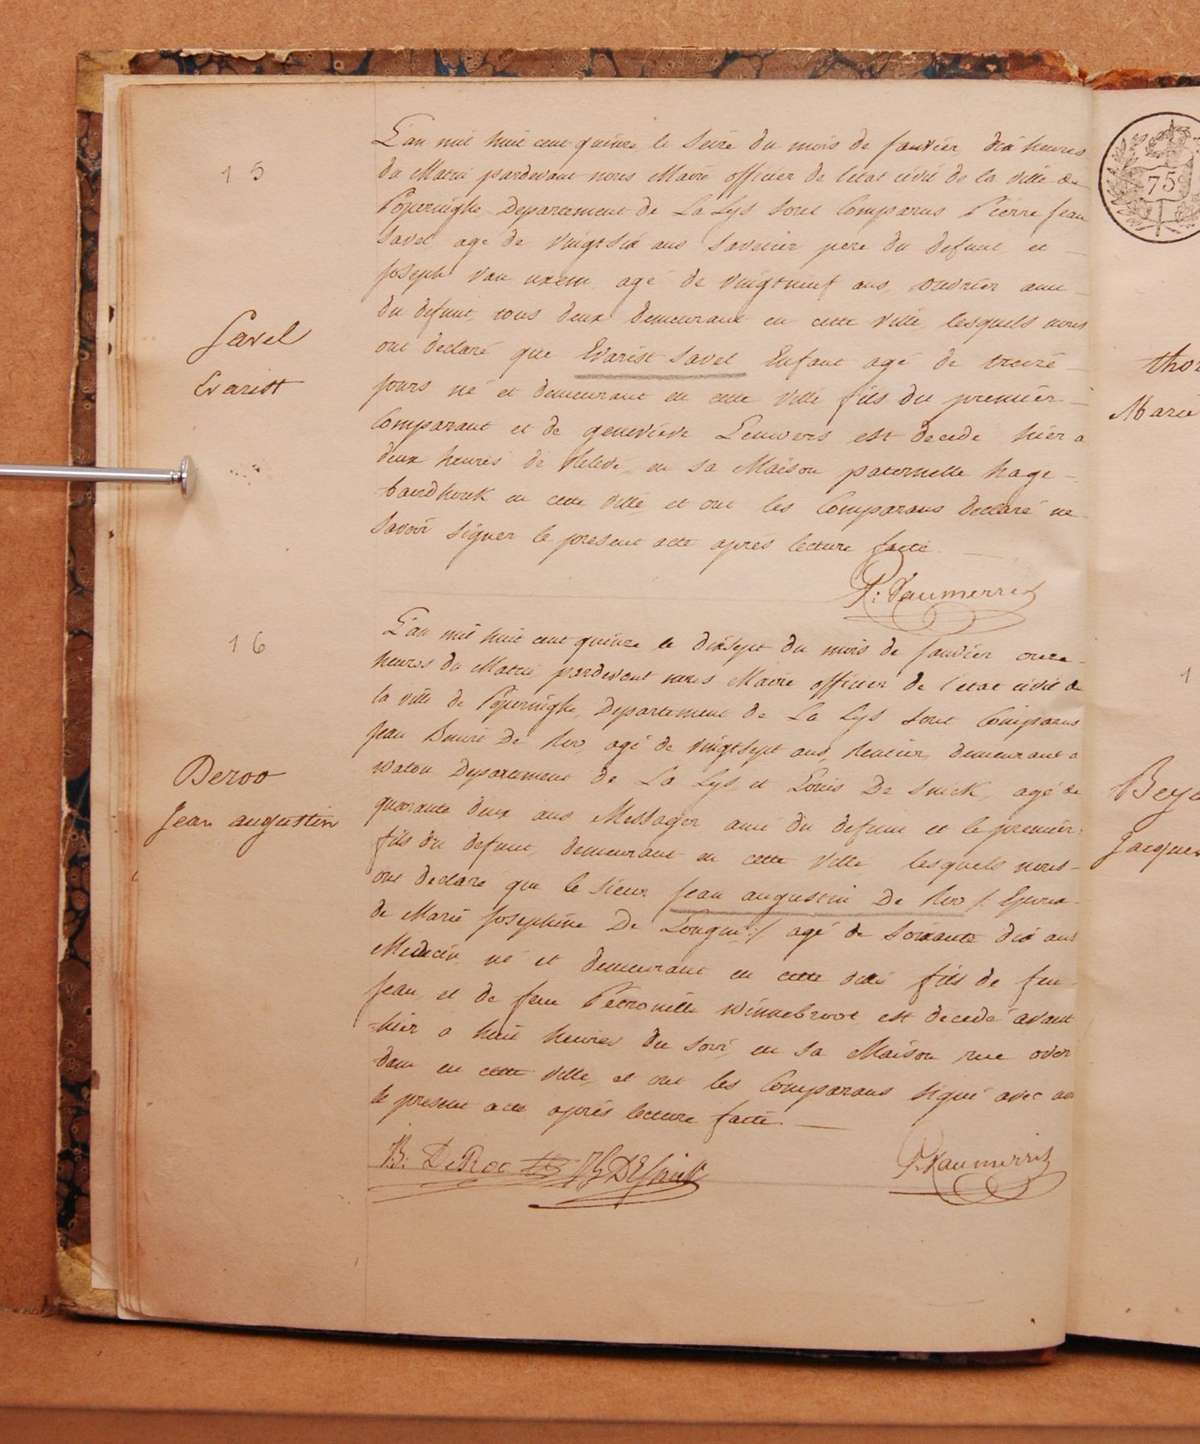 15
L'an mil huit cent quinze le seize du mois de Janvier dix heures
du Matin pardevant nous Maire officier de l'état civil de la ville de
Poperinghe, Departement de La Lys sont Comparus Pierre Jean
Savel agé de vingt six ans savetier pere du defunt et
Joseph van uxem agé de vingt neuf ans, ouvrier ami
du defunt, tous deux demeurant en cette ville, lesquels nous
Savel
Evarist
ont declaré que Evarist Savel Enfant agé de treize
jours né et demeurant en cette ville fils du premier
Comparant et de genevieve Leuwers est decede hier a
deux heures de relevé, en sa Maison paternelle hage-
bandhouk en cette ville, et ont les Comparans declaré ne
savoir signer le present acte après lecture faite.
P: Vaumerris
16
L'an mil huit cent quinze le dixsept du mois de Janvier onze
heures du Matin pardevant nous Maire officier de l'etat civil de
la ville de Poperinghe, Departement de La Lys sont Comparus
Jean De Roo, agé de vingtsept ans, Rentier, demeurant a
Watou Departement de La Lys et Louis De agé de
quarante deux ans Messager ami du defunt et le premier
Deroo
Jean augustin
fils du defunt, demeurant en cette ville lesquels nous
ont declaré que le Sieur Jean augustin De Roo /: Epoux
de Marie Josephine De :/ agé de soixante dix ans
Medecin, né et demeurant en cette ville fils de feu
Jean, et de feue Petronille Winnebroot est decedé avant
hier a huit heures du soir, en sa Maison rue over
dam en cette ville, et ont les Comparans signé avec nous
le present acte après lecture faite.
B. DeRoo
P. Vaumerris
75
Marie
Jacques
1